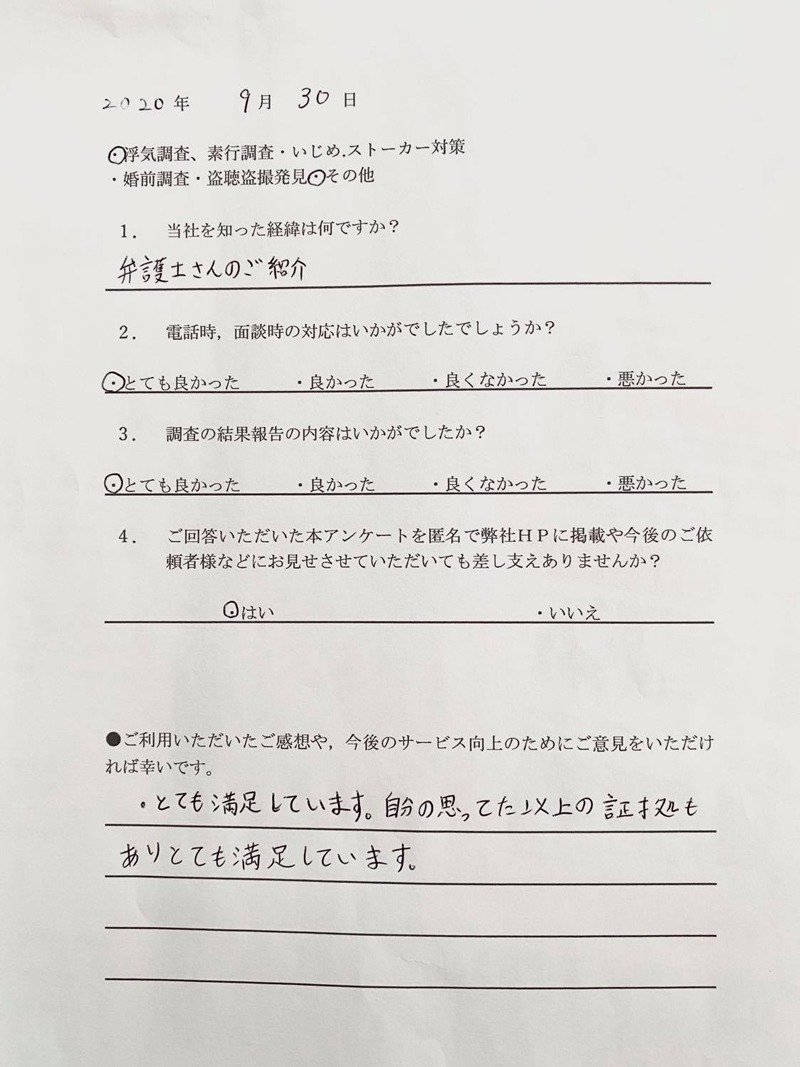 2020年 9月 30日
・浮気調査、素行調査・いじめ.ストーカー対策
・婚前調査・盗聴盗撮発見・その他
1. 当社を知った経緯は何ですか？
弁護士さんのご紹介
2. 電話時，面談時の対応はいかがでしたでしょうか？
・とても良かった ・良かった ・良くなかった ・悪かった
3. 調査の結果報告の内容はいかがでしたか？
・とても良かった ・良かった ・良くなかった ・悪かった
4. ご回答いただいた本アンケートを匿名で弊社ＨＰに掲載や今後のご依
頼者様などにお見せさせていただいても差し支えありませんか？
・はい ・いいえ
●ご利用いただいたご感想や，今後のサービス向上のためにご意見をいただけ
れば幸いです。
・とても満足しています。自分の思ってた以上の証拠も
ありとても満足しています。